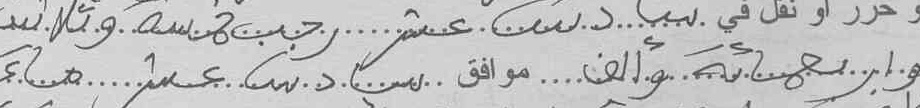 و حرر او نقل في ..سا..دس...عشر.....رجب خمسة وثلاثين
و اربعمائة وألف.... موافق ..سا..دس...عشر.....ماي